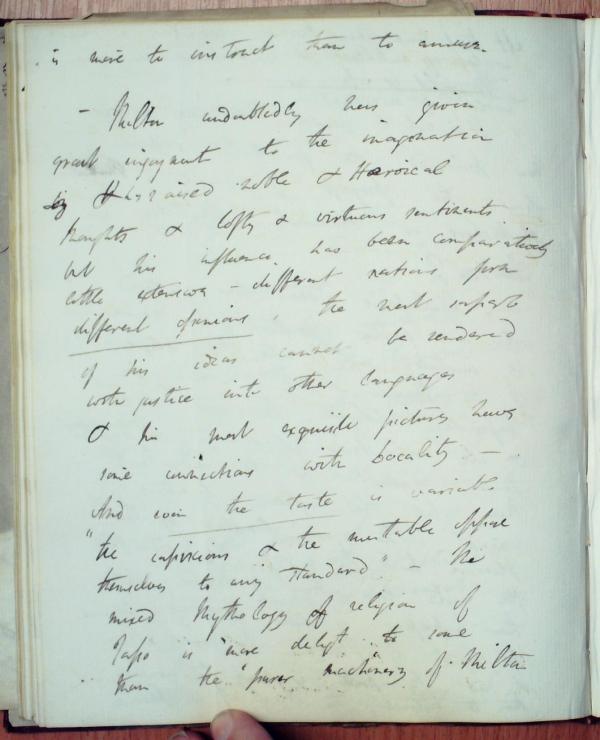 is more to instruct than to amuse.
– Milton undoubtedly has given
great enjoyment to the imagination
by & has raised noble & Heroical
thoughts & lofty & virtuous sentiments
but his influence has been comparatively
little extensive – different nations form
different opinions, the most superb
of his ideas cannot be rendered
with justice into other languages
& his most exquisite pictures have
some connections with locality –
And even the taste is variable
"the capricious & the mutable oppose
themselves to any standard" – The
mixed Mythology of religion of
Tasso is more delightful to some
than the "purer machinery of Milton